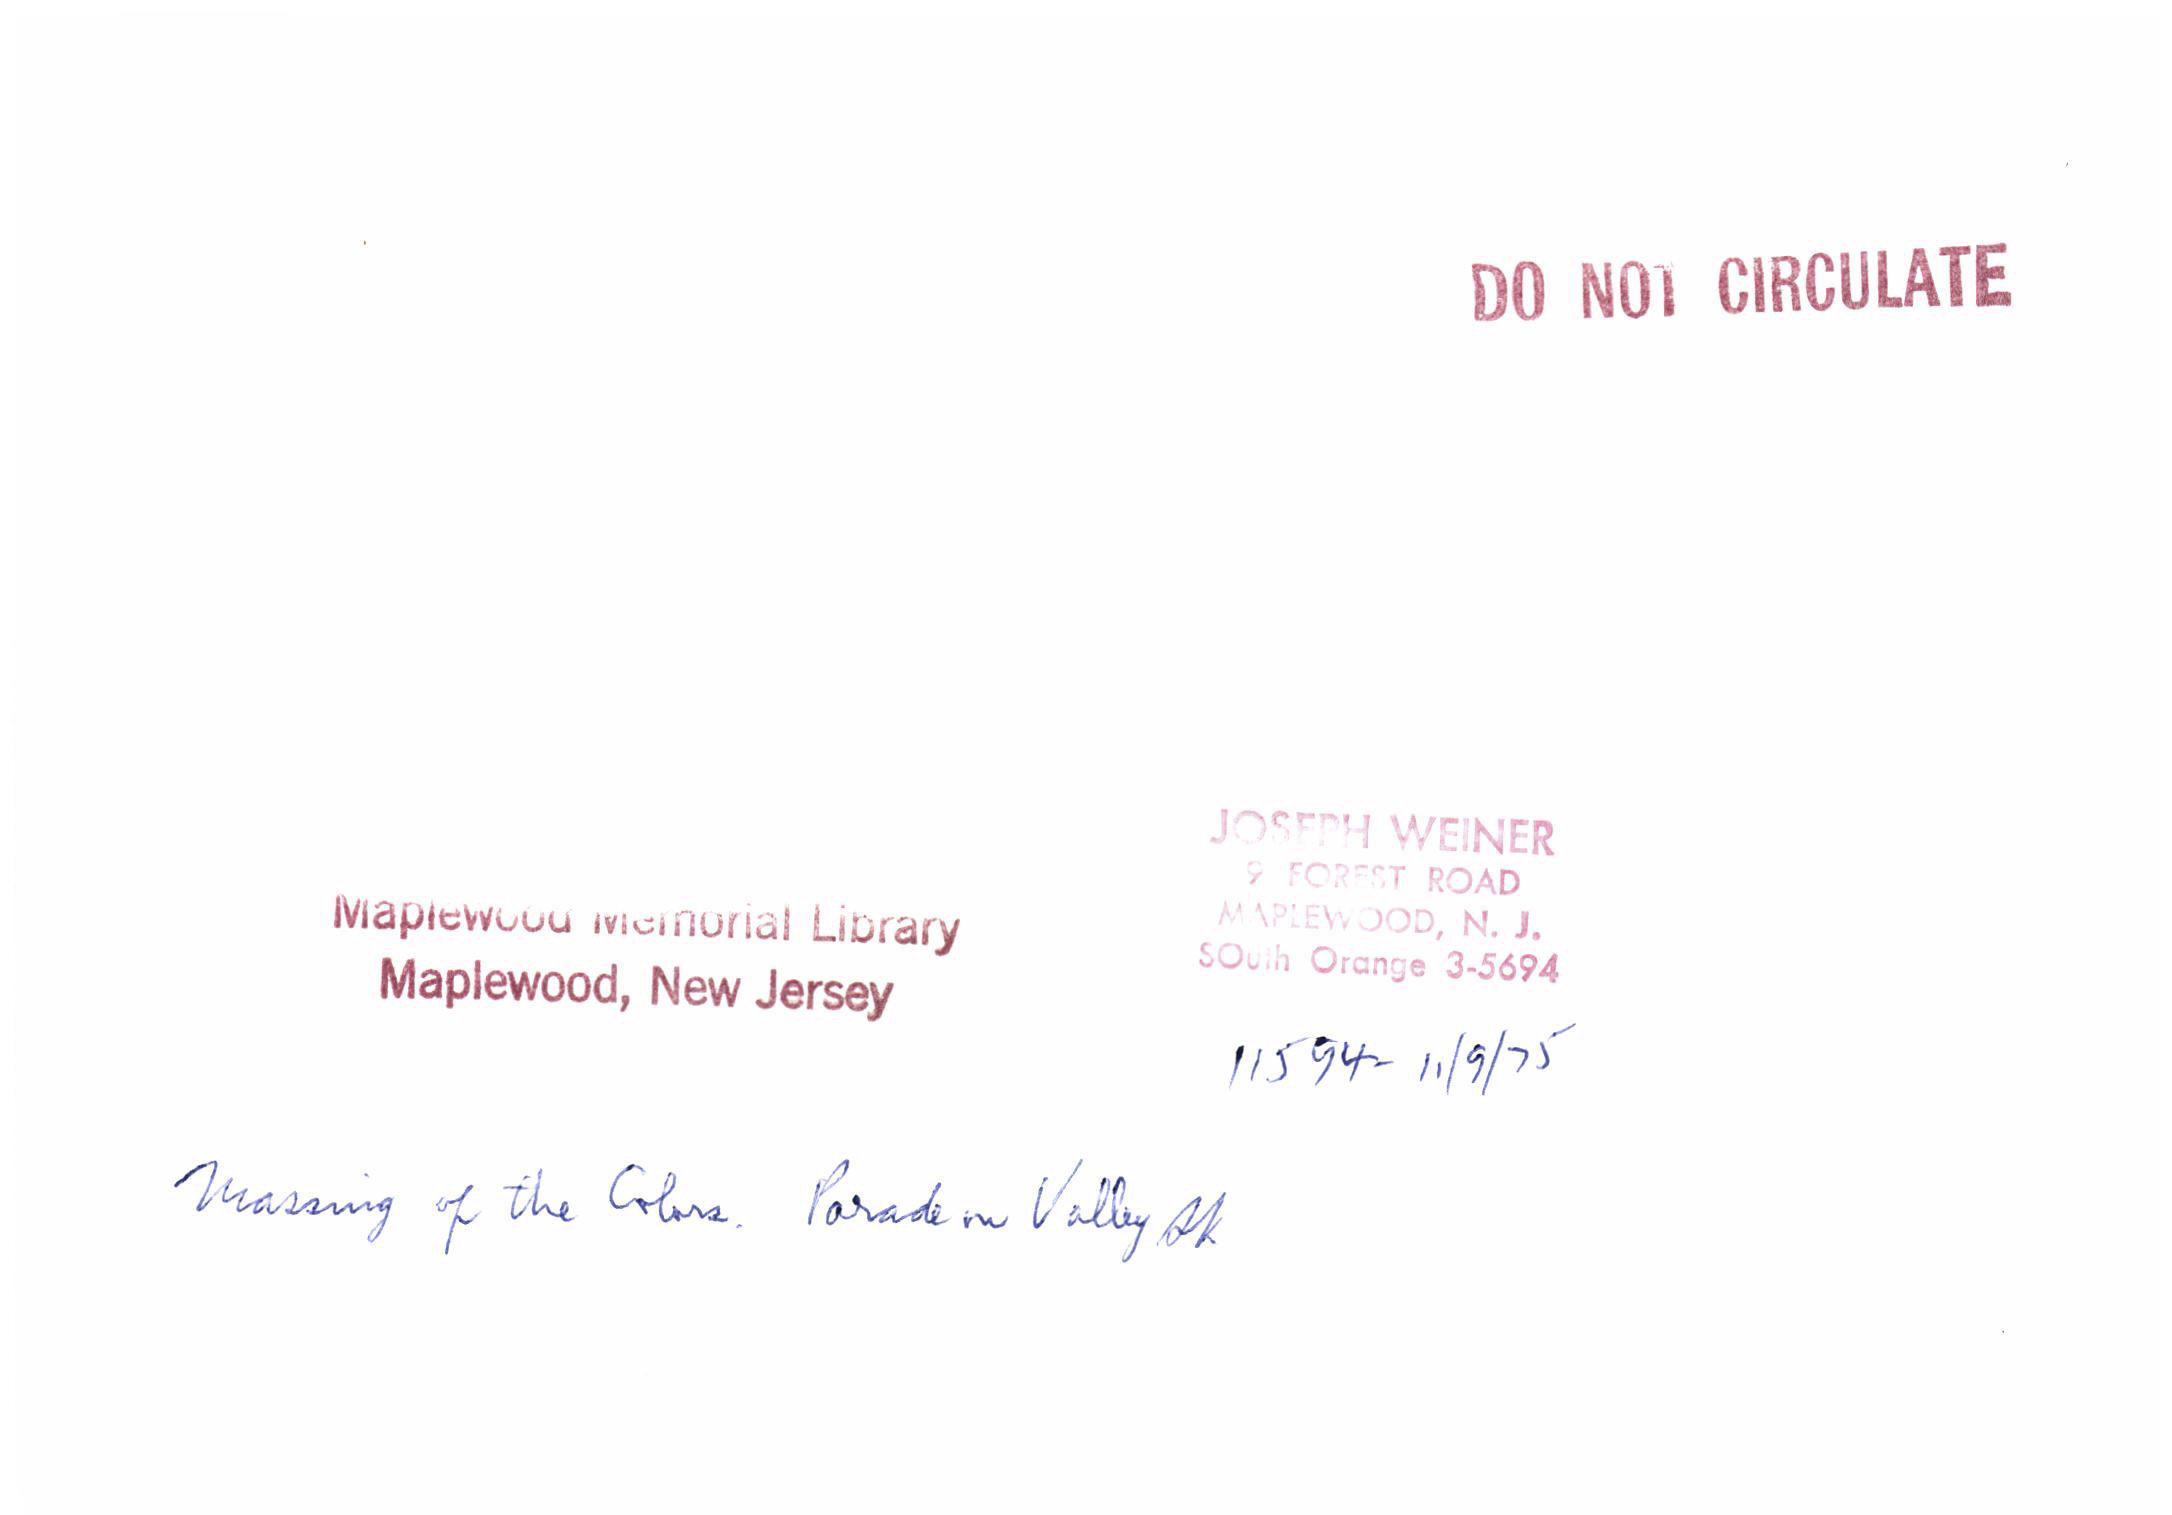 DO NOT CIRCULATE
JOSEPH WEINER
9 FOREST ROAD
MAPLEWOOD, N. J.
SOuth Orange 3-5694
Maplewood Memorial Library
Maplewood, New Jersey
11594- 11/9/75
Massing of the Colors. Parade on Valley St